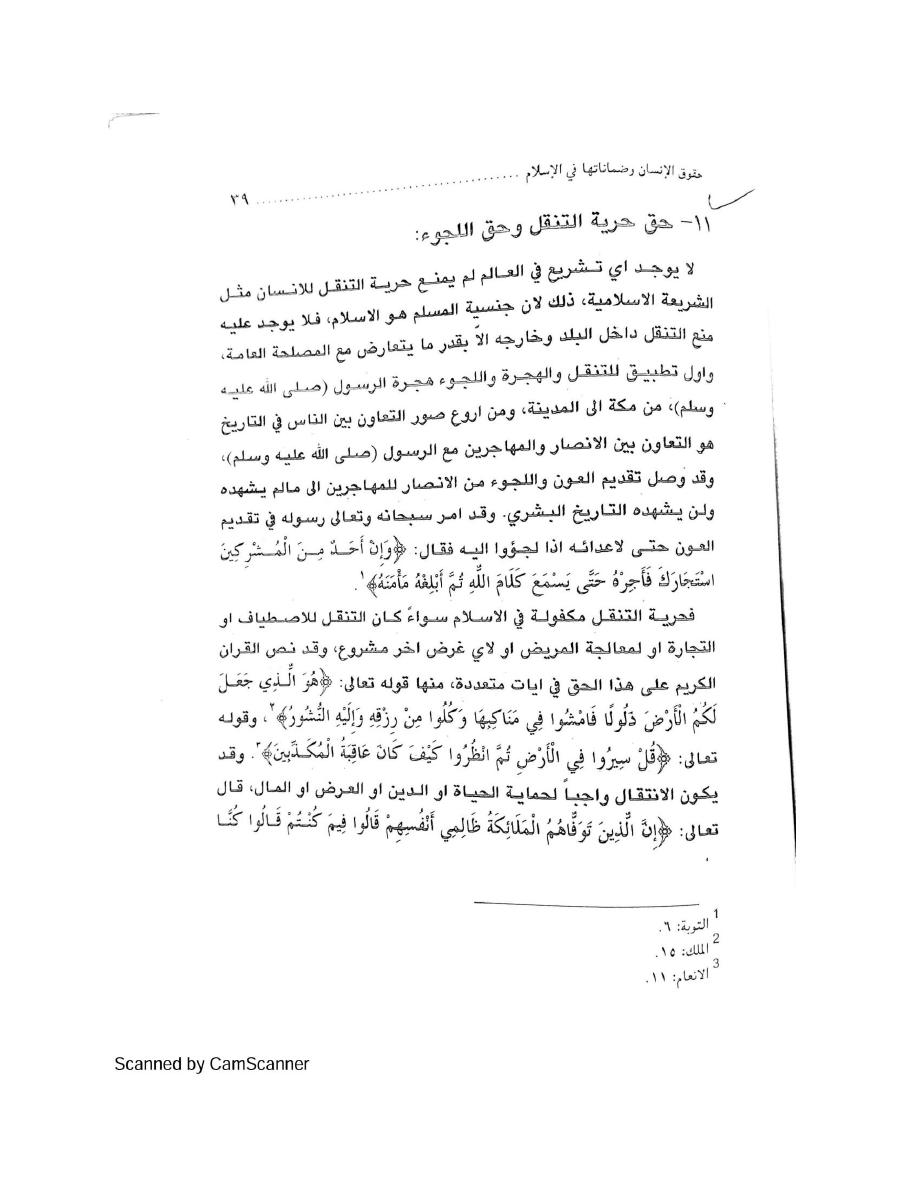 حقوق الإنسان وضماناتها في الإسلام ........................................... ٣٩
١١- حق حرية التنقل وحق اللجوء:
لا يوجد اي تشريع في العالم لم يمنع حرية التنقل للانسان مثل
الشريعة الاسلامية، ذلك لان جنسية المسلم هو الاسلام، فلا يوجد عليه
منع التنقل داخل البلد وخارجه الاّ بقدر ما يتعارض مع المصلحة العامة،
واول تطبيق للتنقل والهجرة واللجوء هجرة الرسول (صلى الله عليه
وسلم)، من مكة الى المدينة، ومن اروع صور التعاون بين الناس في التاريخ
هو التعاون بين الانصار والمهاجرين مع الرسول (صلى الله عليه وسلم)،
وقد وصل تقديم العون واللجوء من الانصار للمهاجرين الى مالم يشهده
ولن يشهده التاريخ البشري. وقد امر سبحانه وتعالى رسوله في تقديم
العون حتى لاعدائه اذا لجؤوا اليه فقال: ﴿وَإِنْ أَحَدٌ مِنَ الْمُشْرِكِينَ
اسْتَجَارَكَ فَأَجِرْهُ حَتَّى يَسْمَعَ كَلَامَ اللَّهِ ثُمَّ أَبْلِغْهُ مَأْمَنَهُ﴾١.
فحرية التنقل مكفولة في الاسلام سواءً كان التنقل للاصطياف او
التجارة او لمعالجة المريض او لاي غرض اخر مشروع، وقد نص القران
الكريم على هذا الحق في ايات متعددة، منها قوله تعالى: ﴿هُوَ الَّذِي جَعَلَ
لَكُمُ الْأَرْضَ ذَلُولًا فَامْشُوا فِي مَنَاكِبِهَا وَكُلُوا مِنْ رِزْقِهِ وَإِلَيْهِ النُّشُورُ﴾٢، وقوله
تعالى: ﴿قُلْ سِيرُوا فِي الْأَرْضِ ثُمَّ انْظُرُوا كَيْفَ كَانَ عَاقِبَةُ الْمُكَذِّبِينَ﴾٣. وقد
يكون الانتقال واجباً لحماية الحياة او الدين او العرض او المال، قال
تعالى: ﴿إِنَّ الَّذِينَ تَوَفَّاهُمُ الْمَلَائِكَةُ ظَالِمِي أَنْفُسِهِمْ قَالُوا فِيمَ كُنْتُمْ قَالُوا كُنَّا
1 التوبة: ٦.
2 الملك: ١٥.
3 الانعام: ١١.
Scanned by CamScanner